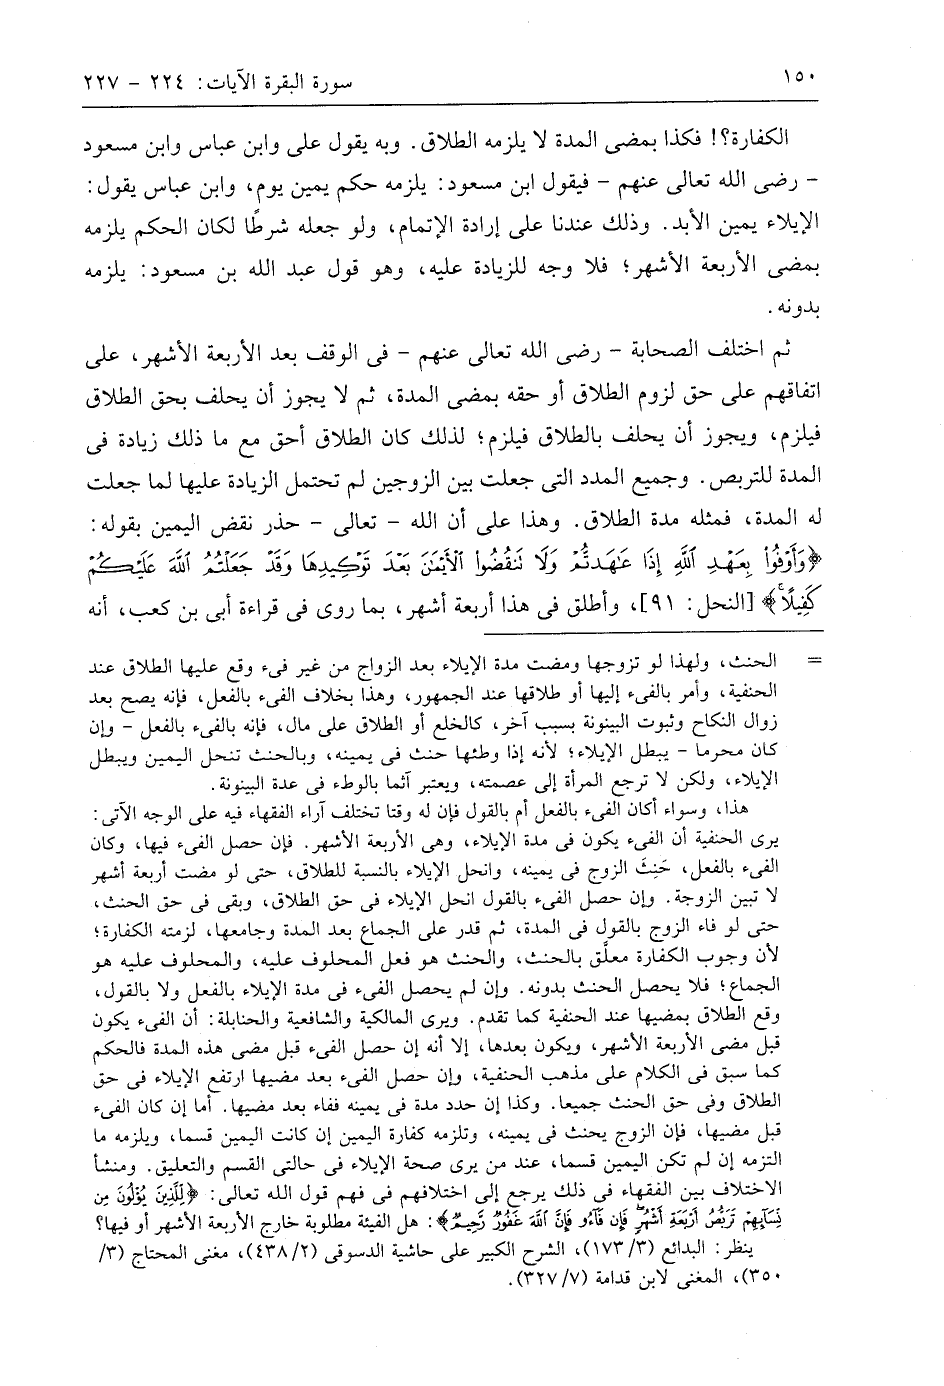 ١٥٠
سورة البقرة الآيات: ٢٢٤ - ٢٢٧
الكفارة؟! فكذا بمضى المدة لا يلزمه الطلاق. وبه يقول على وابن عباس وابن مسعود
- رضى الله تعالى عنهم - فيقول ابن مسعود: يلزمه حكم يمين يوم، وابن عباس يقول:
الإيلاء يمين الأبد. وذلك عندنا على إرادة الإتمام، ولو جعله شرطًا لكان الحكم يلزمه
بمضى الأربعة الأشهر؛ فلا وجه للزيادة عليه، وهو قول عبد الله بن مسعود: يلزمه
بدونه.
ثم اختلف الصحابة - رضى الله تعالى عنهم - فى الوقف بعد الأربعة الأشهر، على
اتفاقهم على حق لزوم الطلاق أو حقه بمضى المدة، ثم لا يجوز أن يحلف بحق الطلاق
فيلزم، ويجوز أن يحلف بالطلاق فيلزم؛ لذلك كان الطلاق أحق مع ما ذلك زيادة فى
المدة للتربص. وجميع المدد التى جعلت بين الزوجين لم تحتمل الزيادة عليها لما جعلت
له المدة، فمثله مدة الطلاق. وهذا على أن الله - تعالى - حذر نقض اليمين بقوله:
﴿وَأَوْفُوا۟ بِعَهْدِ ٱللَّهِ إِذَا عَٰهَدتُّمْ وَلَا نَنقُضُوا۟ ٱلْأَيْمَٰنَ بَعْدَ تَوْكِيدِهَا وَقَدْ جَعَلْتُمُ ٱللَّهَ عَلَيْكُمْ
كَفِيلًا﴾ [النحل: ٩١]، وأطلق فى هذا أربعة أشهر، بما روى فى قراءة أبى بن كعب، أنه
= الحنث، ولهذا لو تزوجها ومضت مدة الإيلاء بعد الزواج من غير فىء وقع عليها الطلاق عند
الحنفية، وأمر بالفىء إليها أو طلاقها عند الجمهور، وهذا بخلاف الفىء بالفعل، فإنه يصح بعد
زوال النكاح وثبوت البينونة بسبب آخر، كالخلع أو الطلاق على مال، فإنه بالفىء بالفعل - وإن
كان محرما - يبطل الإيلاء؛ لأنه إذا وطئها حنث فى يمينه، وبالحنث تنحل اليمين ويبطل
الإيلاء، ولكن لا ترجع المرأة إلى عصمته، ويعتبر آثما بالوطء فى عدة البينونة.
هذا، وسواء أكان الفىء بالفعل أم بالقول فإن له وقتا تختلف آراء الفقهاء فيه على الوجه الآتى:
يرى الحنفية أن الفىء يكون فى مدة الإيلاء، وهى الأربعة الأشهر. فإن حصل الفىء فيها، وكان
الفىء بالفعل، حَنِثَ الزوج فى يمينه، وانحل الإيلاء بالنسبة للطلاق، حتى لو مضت أربعة أشهر
لا تبين الزوجة. وإن حصل الفىء بالقول انحل الإيلاء فى حق الطلاق، وبقى فى حق الحنث،
حتى لو فاء الزوج بالقول فى المدة، ثم قدر على الجماع بعد المدة وجامعها، لزمته الكفارة؛
لأن وجوب الكفارة معلَّق بالحنث، والحنث هو فعل المحلوف عليه، والمحلوف عليه هو
الجماع؛ فلا يحصل الحنث بدونه. وإن لم يحصل الفىء فى مدة الإيلاء بالفعل ولا بالقول،
وقع الطلاق بمضيها عند الحنفية كما تقدم. ويرى المالكية والشافعية والحنابلة: أن الفىء يكون
قبل مضى الأربعة الأشهر، ويكون بعدها، إلا أنه إن حصل الفىء قبل مضى هذه المدة فالحكم
كما سبق فى الكلام على مذهب الحنفية، وإن حصل الفىء بعد مضيها ارتفع الإيلاء فى حق
الطلاق وفى حق الحنث جميعا. وكذا إن حدد مدة فى يمينه ففاء بعد مضيها. أما إن كان الفىء
قبل مضيها، فإن الزوج يحنث فى يمينه، وتلزمه كفارة اليمين إن كانت اليمين قسما، ويلزمه ما
التزمه إن لم تكن اليمين قسما، عند من يرى صحة الإيلاء فى حالتى القسم والتعليق. ومنشأ
الاختلاف بين الفقهاء فى ذلك يرجع إلى اختلافهم فى فهم قول الله تعالى: ﴿لِّلَّذِينَ يُؤْلُونَ مِن
نِّسَآئِهِمْ تَرَبُّصُ أَرْبَعَةِ أَشْهُرٍ فَإِن فَآءُو فَإِنَّ ٱللَّهَ غَفُورٌ رَّحِيمٌ﴾: هل الفيئة مطلوبة خارج الأربعة الأشهر أو فيها؟
ينظر: البدائع (٣/ ١٧٣)، الشرح الكبير على حاشية الدسوقى (٢/ ٤٣٨)، مغنى المحتاج (٣/
٣٥٠)، المغنى لابن قدامة (٧/ ٣٢٧).